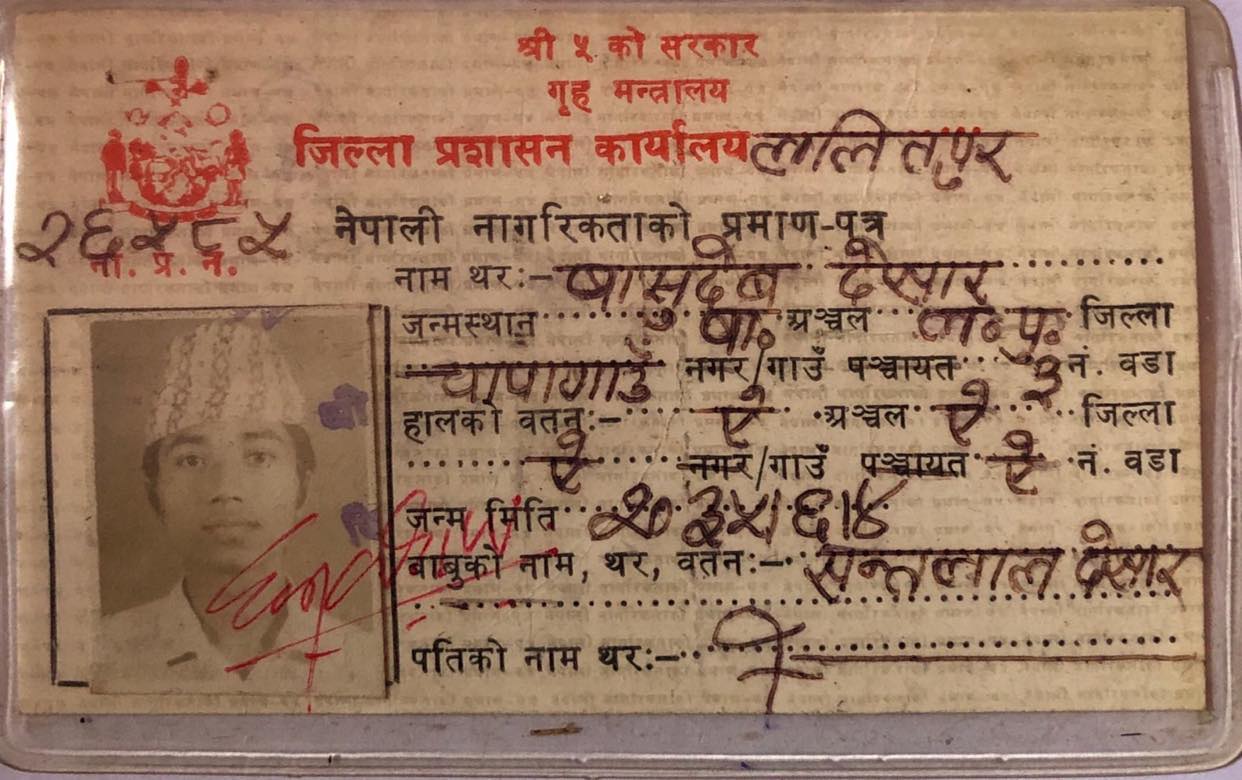 श्री ५ को सरकार
गृह मन्त्रालय
जिल्ला प्रशासन कार्यालय ललितपुर
२६५८५
ना. प्र. नं.
नेपाली नागरिकताको प्रमाण-पत्र
नाम थर:- बासुदेब देसार
जन्मस्थान बा. अञ्चल ल. पु. जिल्ला
चापागाउँ नगर/गाउँ पञ्चायत ३ नं. वडा
हालको वतन:- ऐ अञ्चल ऐ जिल्ला
ऐ नगर/गाउँ पञ्चायत ऐ नं. वडा
जन्म मिति २०३५।६।४
बाबुको नाम, थर, वतन:- सन्तलाल देसार
पतिको नाम थर:-